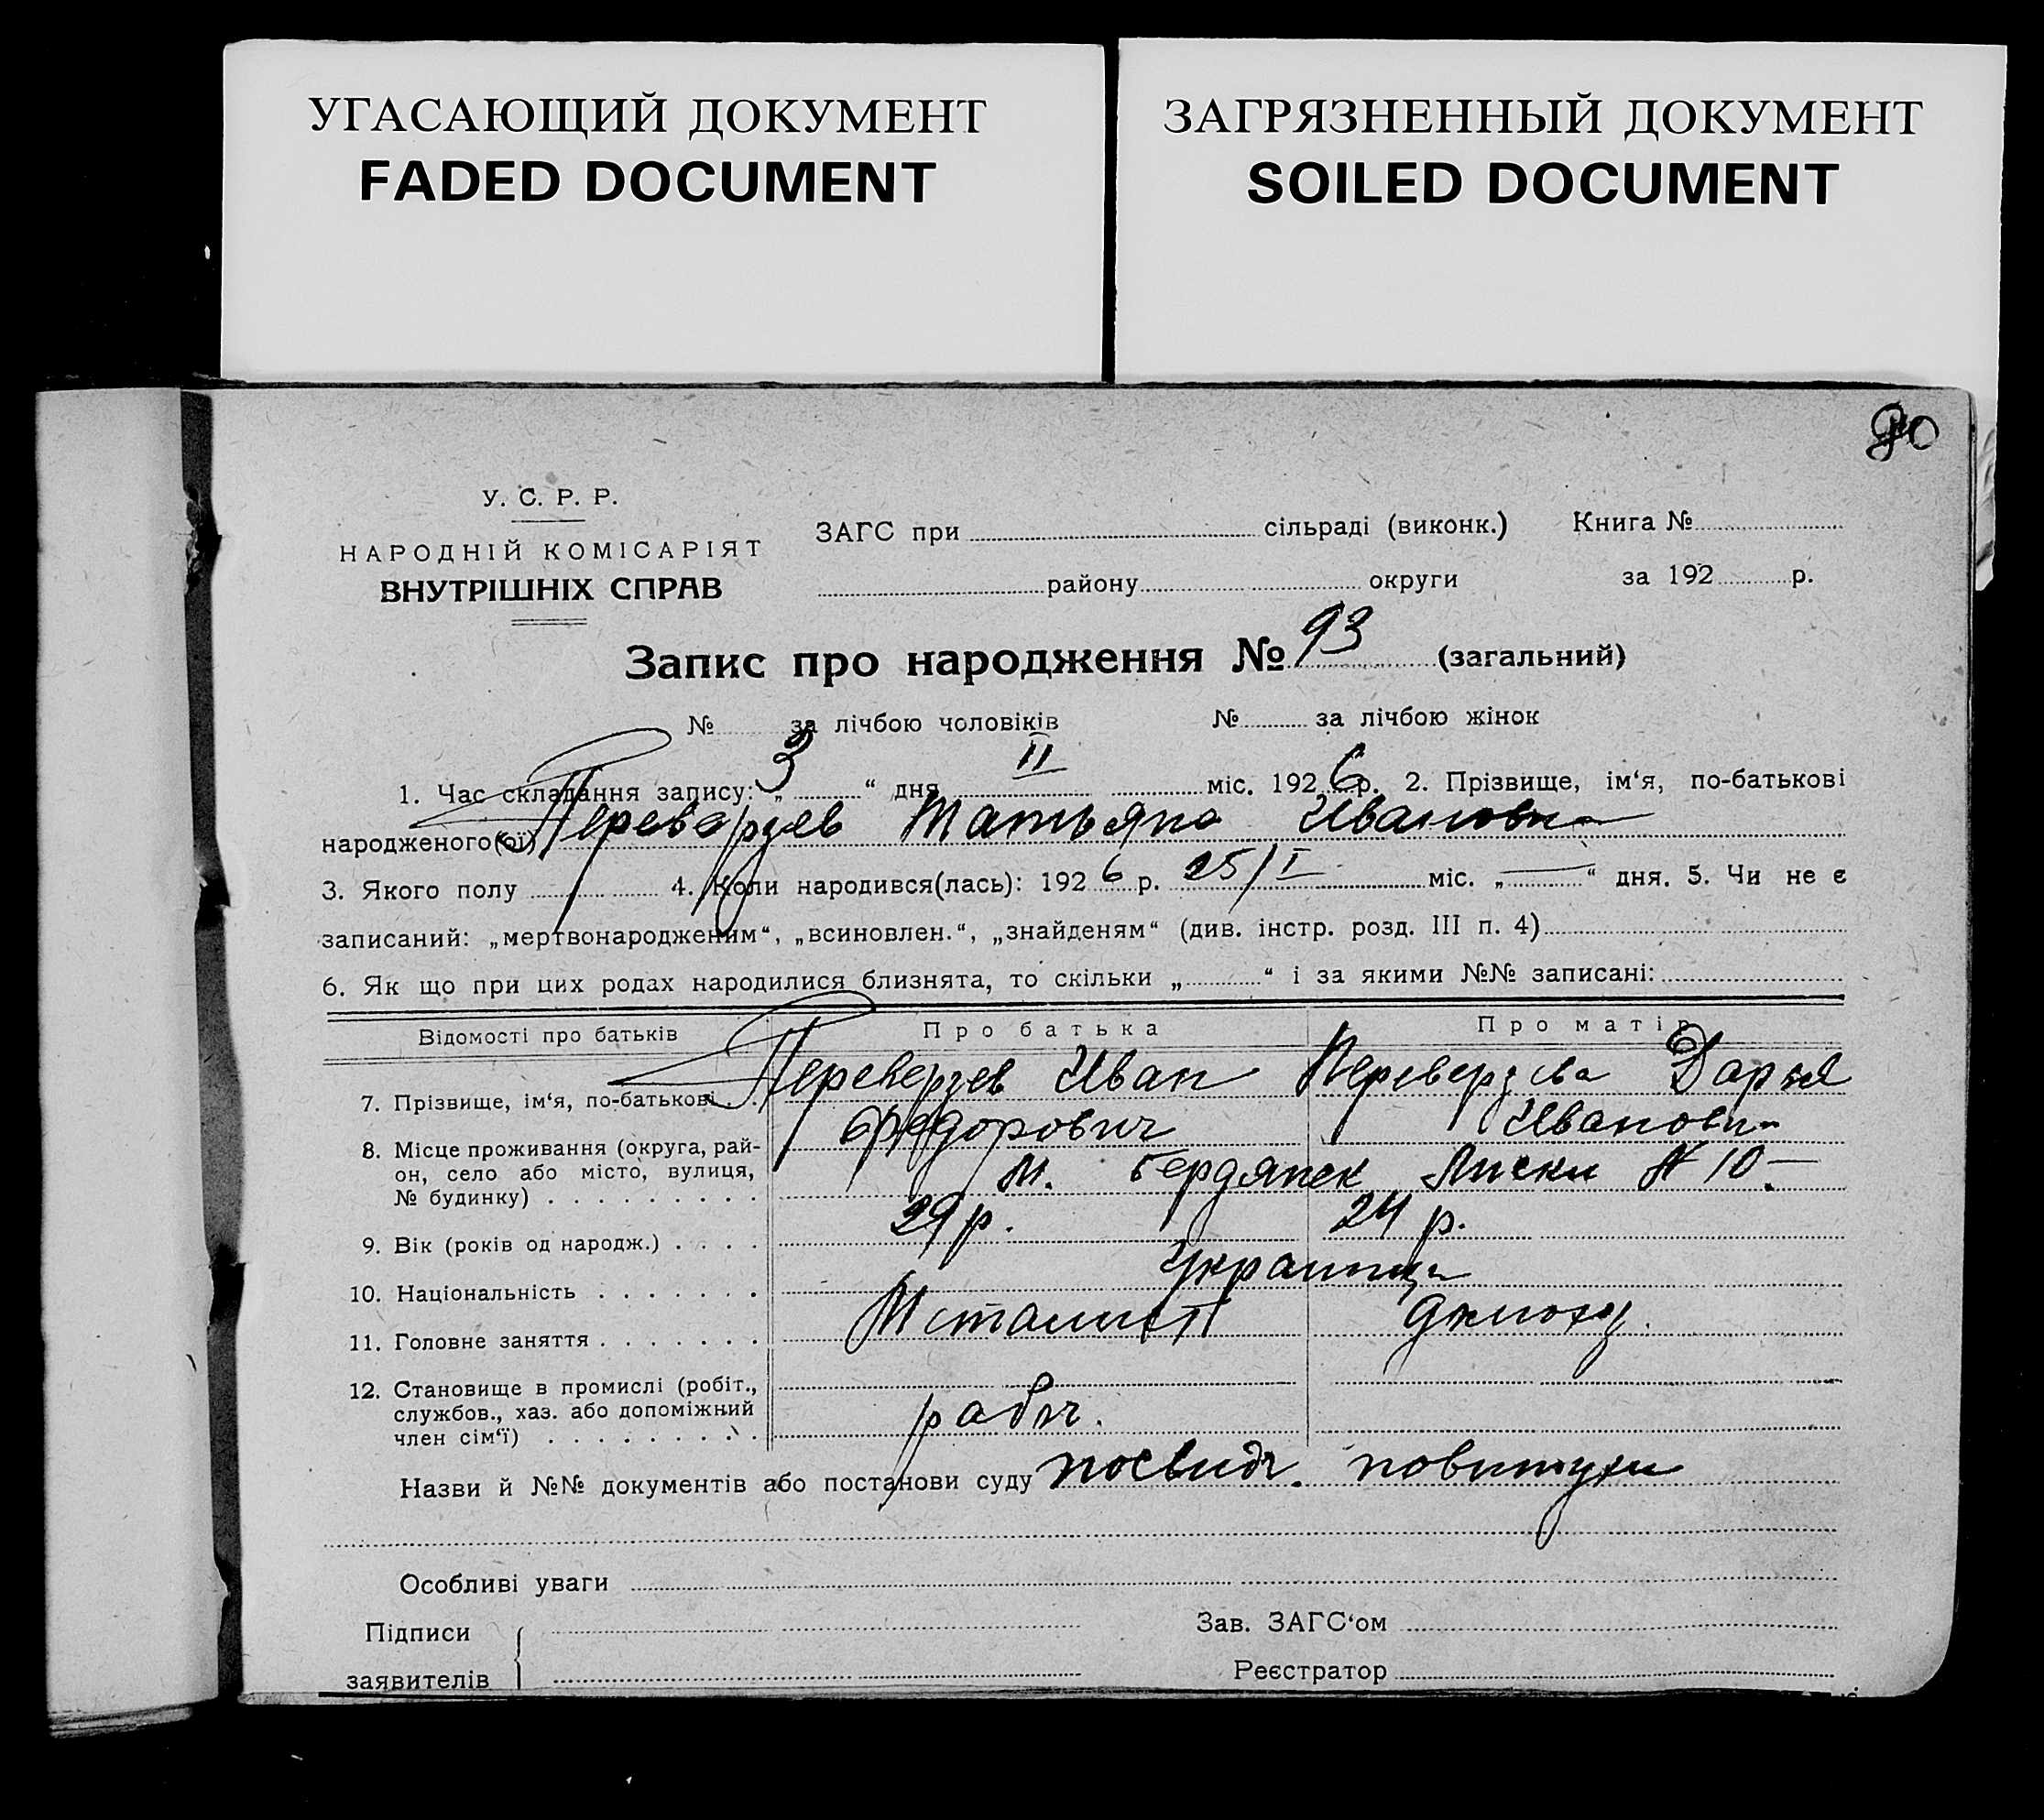 УГАСАЮЩИЙ ДОКУМЕНТ
FADED DOCUMENT
ЗАГРЯЗНЕННЫЙ ДОКУМЕНТ
SOILED DOCUMENT
У. С. Р. Р.
НАРОДНІЙ КОМІСАРІЯТ
ВНУТРІШНІХ СПРАВ
ЗАГС при сільраді (виконк.) Книга №
району округи за 192 р.
Запис про народження № 93 (загальний)
№ за лічбою чоловіків № за лічбою жінок
1. Час складання запису: „ 3 “ дня II міс. 1926 р. 2. Прізвище, ім‘я, по-батькові
народженого(ої) Переверзев Татьяна Ивановна
3. Якого полу 4. Коли народився(лась): 1926 р. 25/I міс. „ — “ дня. 5. Чи не є
записаний: „мертвонародженим“, „всиновлен.“, „знайденям“ (див. інстр. розд. III п. 4)
6. Як що при цих родах народилися близнята, то скільки „ “ і за якими №№ записані:
Відомості про батьків Про батька Про матір
7. Прізвище, ім‘я, по-батькові . . Переверзев Иван Переверзева Дарья
Федорович Ивановн
8. Місце проживання (округа, рай-
он, село або місто, вулиця,
№ будинку) . . . . . . . . . м. Бердянск Лиски № 10 —
9. Вік (років од народж.) . . . . 29 р. 24 р.
10. Національність . . . . . . . Украинци
11. Головне заняття . . . . . . . Металист
12. Становище в промислі (робіт.,
службов., хаз. або допоміжний
член сім‘ї) . . . . . . . . . рабоч.
Назви й №№ документів або постанови суду посвидч. повитухи
Особливі уваги
Підписи
заявителів
Зав. ЗАГС‘ом
Реєстратор